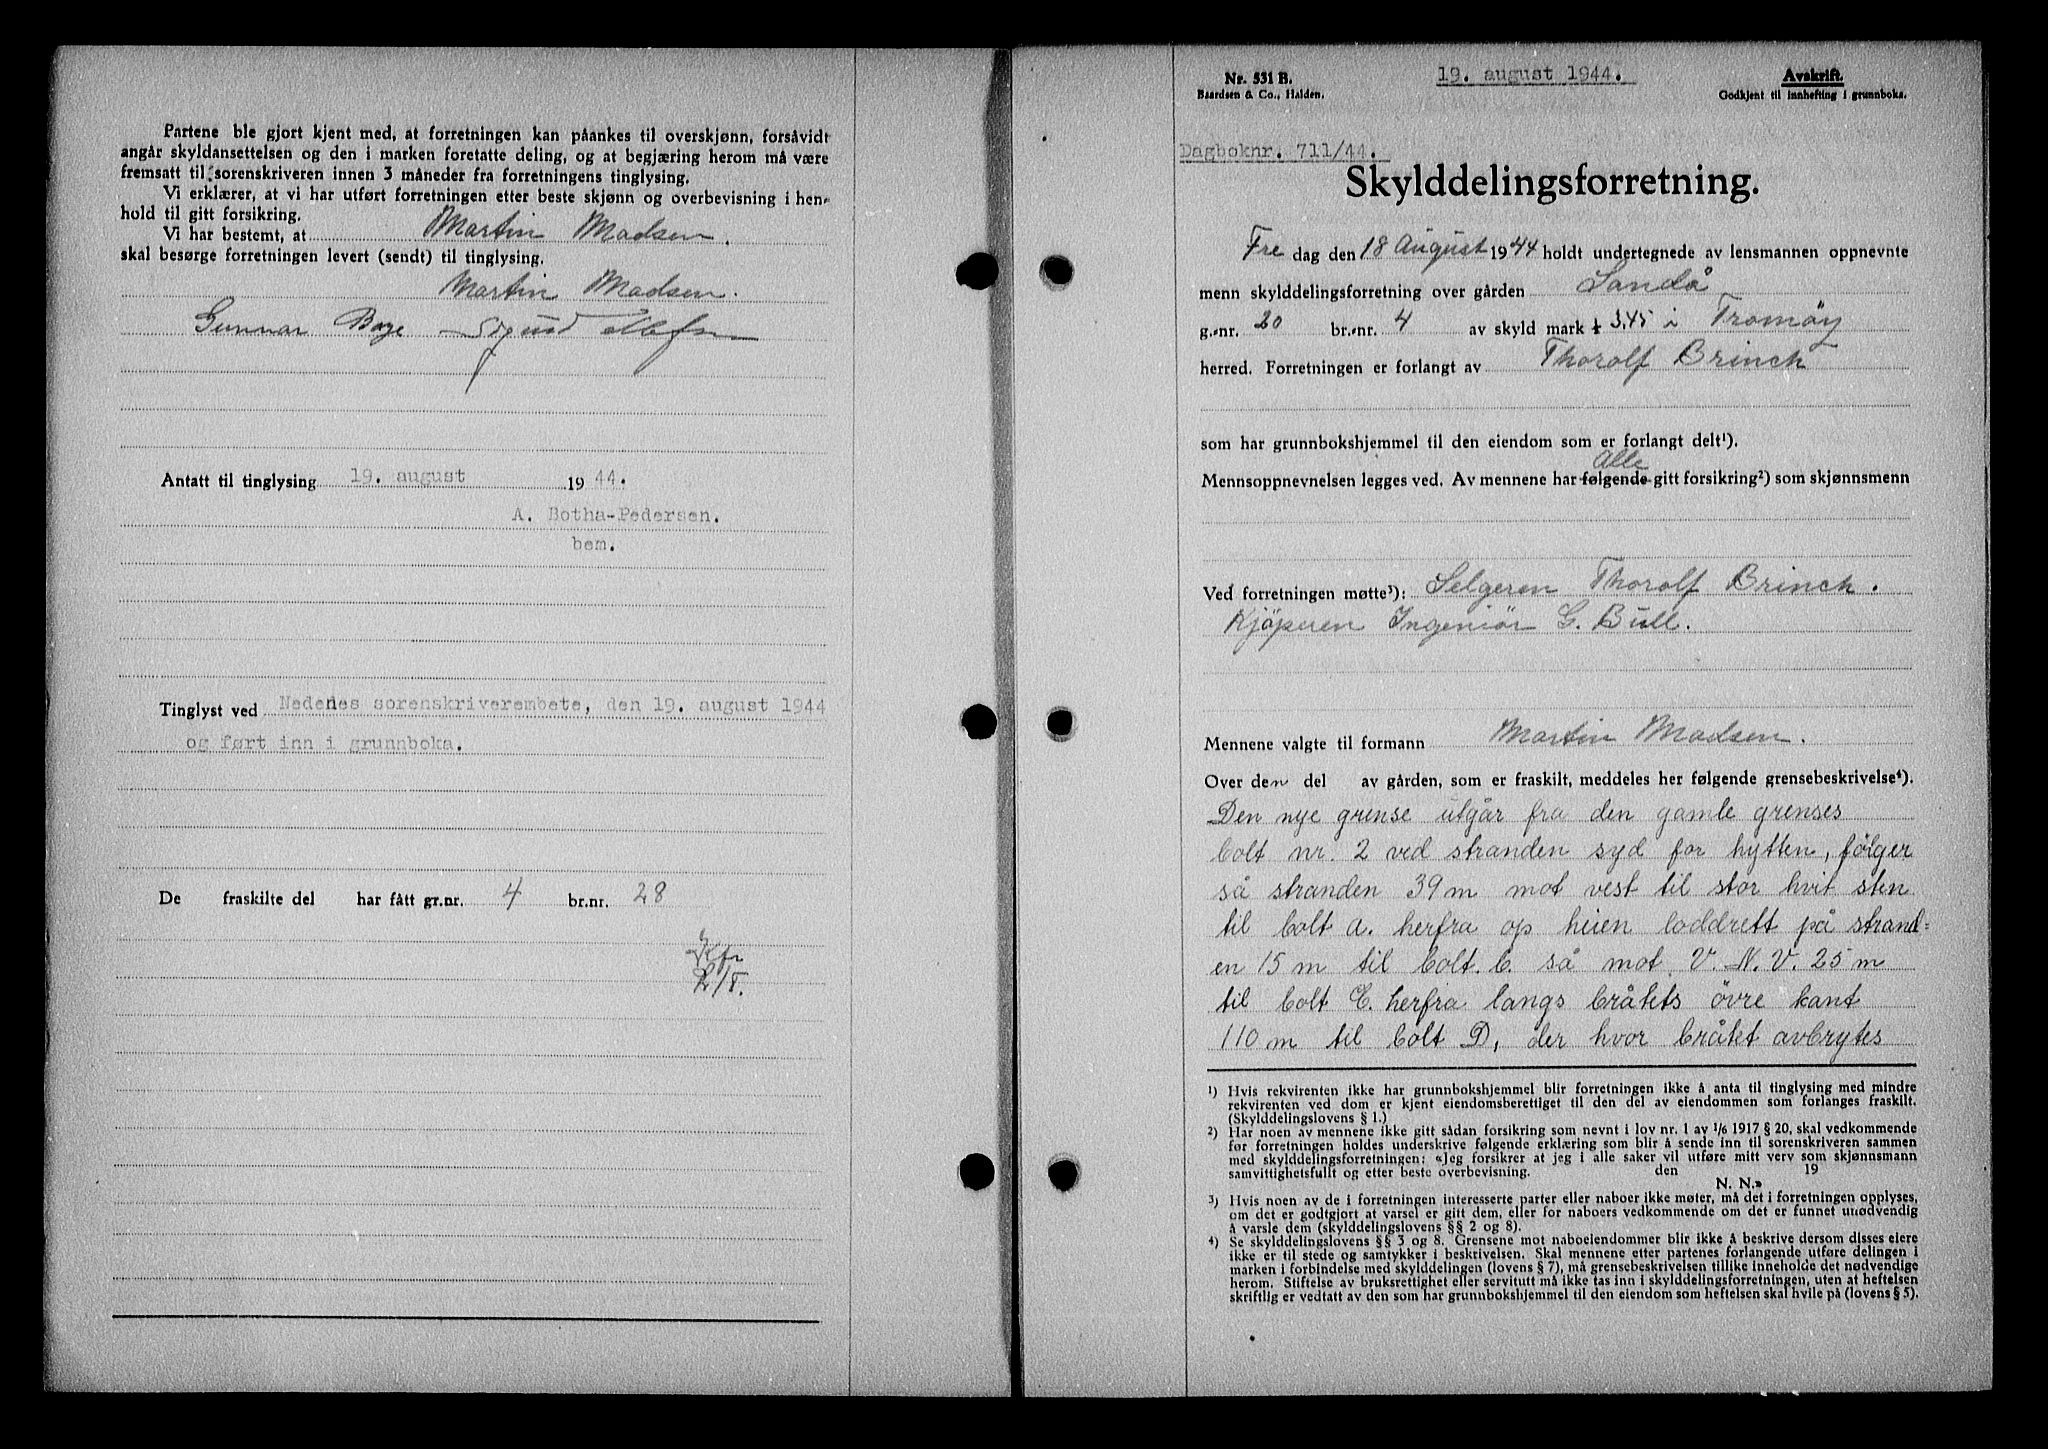 Partene ble gjort kjent med, at forretningen kan påankes til overskjønn, forsåvidt
angår skyldansettelsen og den i marken foretatte deling, og at begjæring herom må være
fremsatt til sorenskriveren innen 3 måneder fra forretningens tinglysing.
Vi erklærer, at vi har utført forretningen etter beste skjønn og overbevisning i hen-
hold til gitt forsikring.
Vi har bestemt, at Martin Madsen.
skal besørge forretningen levert (sendt) til tinglysing.
Martin Madsen.
Gunnar Boye Sigurd
Antatt til tinglysing 19. august 1944.
A. Botha-Pedersen.
bem.
Tinglyst ved Nedenes sorenskriverembete, den 19. august 1944
og ført inn i grunnboka.
De fraskilte del har fått gr.nr. 4 br.nr. 28
Nr. 531 B.
Baardsen & Co., Halden.
19. august 1944.
Avskrift.
Godkjent til innhefting i grunnboka.
Dagboknr. 711/44.
Skylddelingsforretning.
Fre dag den 18 August 1944 holdt undertegnede av lensmannen oppnevnte
menn skylddelingsforretning over gården Sandå
g.-nr. 20 br.-nr. 4 av skyld mark 3,45 i Tromøy
herred. Forretningen er forlangt av Thorolf Brinch
som har grunnbokshjemmel til den eiendom som er forlangt delt¹).
Alle
Mennsoppnevnelsen legges ved. Av mennene har følgende gitt forsikring²) som skjønnsmenn
Ved forretningen møtte³): Selgeren Thorolf Brinch.
Kjöperen Ingeniör G. Bull.
Mennene valgte til formann Martin Madsen.
Over den del av gården, som er fraskilt, meddeles her følgende grensebeskrivelse⁴).
Den nye grense utgår fra den gamle grenses
bolt nr. 2 ved stranden syd for hytten, følger
så stranden 39 m mot vest til stor hvit sten
til bolt a. herfra op heien loddrett på strand=
en 15 m til bolt. b. så mot V. N. V. 25 m
til bolt C. herfra langs bråtets övre kant
110 m til bolt D, der hvor bråtet avbrytes
¹) Hvis rekvirenten ikke har grunnbokshjemmel blir forretningen ikke å anta til tinglysing med mindre
rekvirenten ved dom er kjent eiendomsberettiget til den del av eiendommen som forlanges fraskilt.
(Skylddelingslovens § 1.)
²) Har noen av mennene ikke gitt sådan forsikring som nevnt i lov nr. 1 av 1/6 1917 § 20, skal vedkommende
før forretningen holdes underskrive følgende erklæring som blir å sende inn til sorenskriveren sammen
med skylddelingsforretningen: «Jeg forsikrer at jeg i alle saker vil utføre mitt verv som skjønnsmann
samvittighetsfullt og etter beste overbevisning. den 19
N. N.»
³) Hvis noen av de i forretningen interesserte parter eller naboer ikke møter, må det i forretningen opplyses,
om det er godtgjort at varsel er gitt dem, eller for naboers vedkommende om det er funnet unødvendig
å varsle dem (skylddelingslovens §§ 2 og 8).
⁴) Se skylddelingslovens §§ 3 og 8. Grensene mot naboeiendommer blir ikke å beskrive dersom disses eiere
ikke er til stede og samtykker i beskrivelsen. Skal mennene etter partenes forlangende utføre delingen i
marken i forbindelse med skylddelingen (lovens § 7), må grensebeskrivelsen tillike inneholde det nødvendige
herom. Stiftelse av bruksrettighet eller servitutt må ikke tas inn i skylddelingsforretningen, uten at heftelsen
skriftlig er vedtatt av den som har grunnbokshjemmel til den eiendom som heftelsen skal hvile på (lovens § 5).